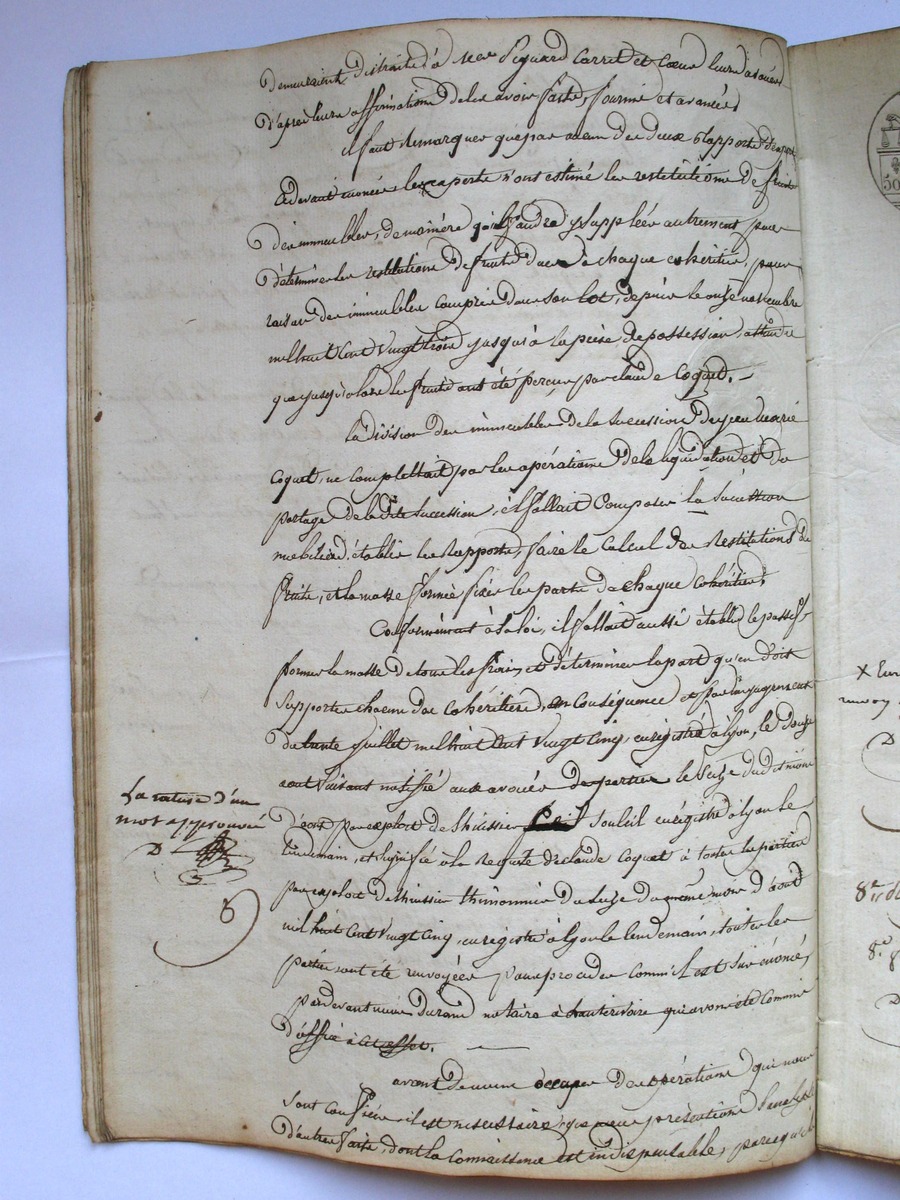 demeuraient distraits à Mes Piguard Carret et Cœur leurs avoués
d'après leurs affirmations de les avoir faits, fournis et avancés
il faut remarquer que par aucun des deux rapports d'experts
cidevant énoncés les experts n'ont estimé les restitutions de fruits
des immeubles, de manière qu'il faudra y suppléer autrement pour
déterminer les restitutions de fruits dues à chaque cohéritier, pour
raison des immeubles compris dans son lot, depuis le onze novembre
mil huit cent vingt trois jusqu'à la prise de possession, attendu
que jusqu'alors les fruits ont été perçus par claude Coquet. —
la division des immeubles de la succession de pierre marie
Coquet, ne complettait pas les opérations de la liquidation et du
partage de la dite succession, il fallait Composer la succession
mobilière, établir les Rapports, faire le Calcul des Restitutions de
fruits, et la masse formée fixer les parts de chaque Cohéritier;
Conformément à la loi, il fallait aussi établir le passif,
former la masse de tous les frais, et déterminer la part qu'en doit
Supporter chacun des Cohéritiers, en Conséquence et par un jugement
du trente juillet mil huit cent vingt cinq, enregistré à lyon, le douze
aout suivant notifié aux avoués des parties le seize dudit mois
d'aout, par exploit de l'huissier Souleil enregistré à lyon le
lendemain, et signifié à la Requête de claude Coquet à toutes les parties
par exploit de l'huissier thimonnier du seize du même mois d'aout
mil huit cent vingt cinq, enregistré à lyon le lendemain, toutes les
parties ont été renvoyées pour procéder comme il est sus énoncé,
pardevant nous Durand notaire à chanterivoire qui avons été Commis
d'office à cet effet. —
avant de nous occuper des opérations qui nous
sont confiées, il est nécessaire que nous présentions
d'autres faits, dont la Connaissance est indispensable, parce qu'
La rature d'un
mot approuvée
D
50
X
D
8e
8e